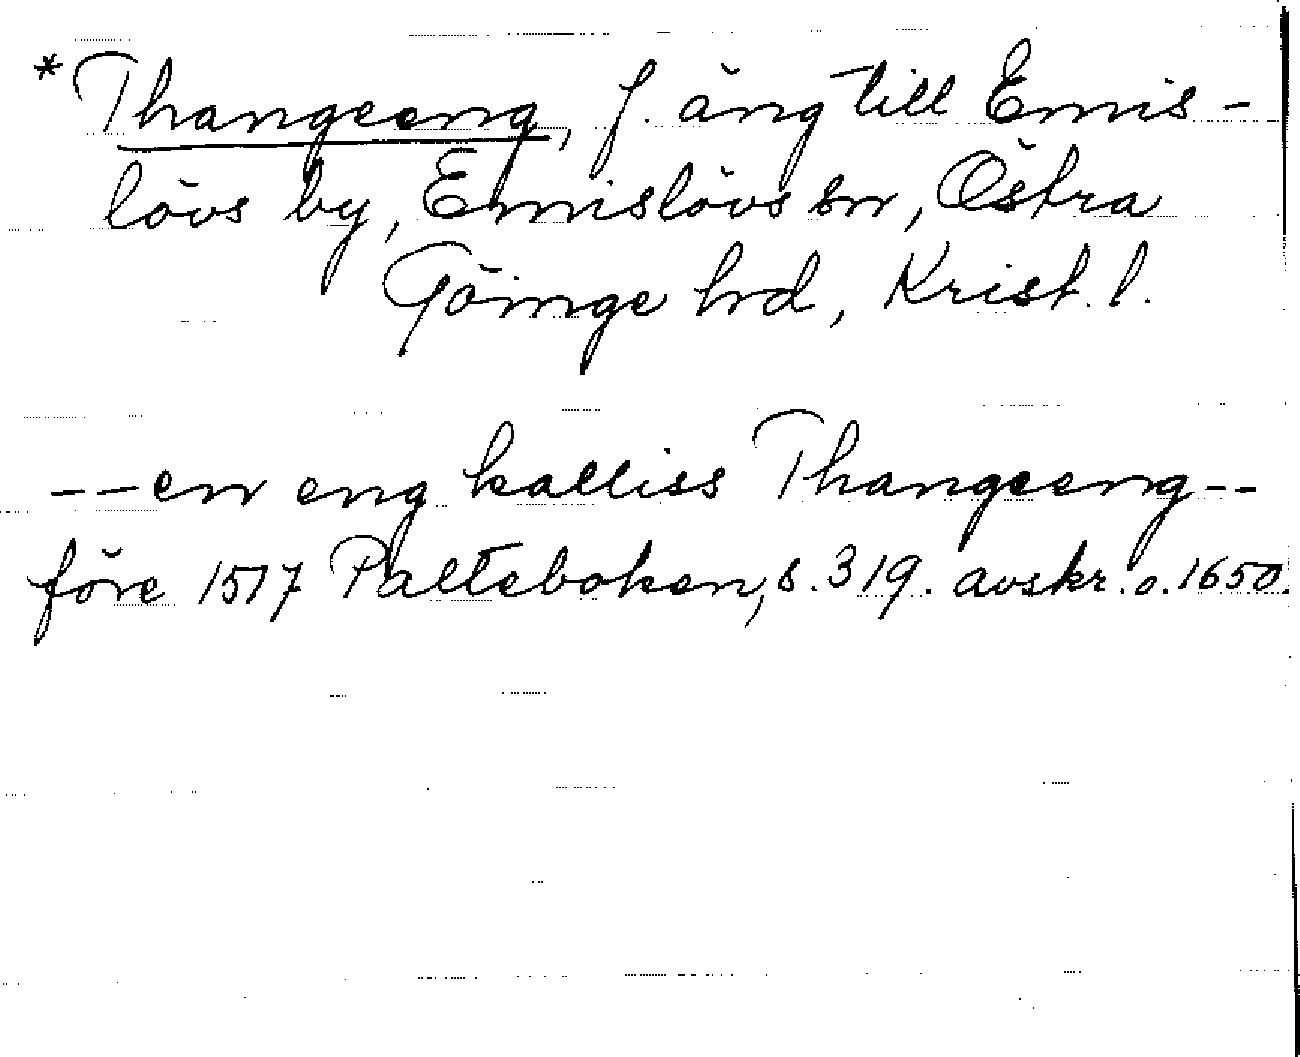 *Thangeeng, f. äng till Emis-
lövs by, Emislövs sn, Östra
Göinge hrd, Krist. l.
--en eng kalliss Thangeeng--
före 1517 Palteboken, s. 319. avskr. o. 1650.